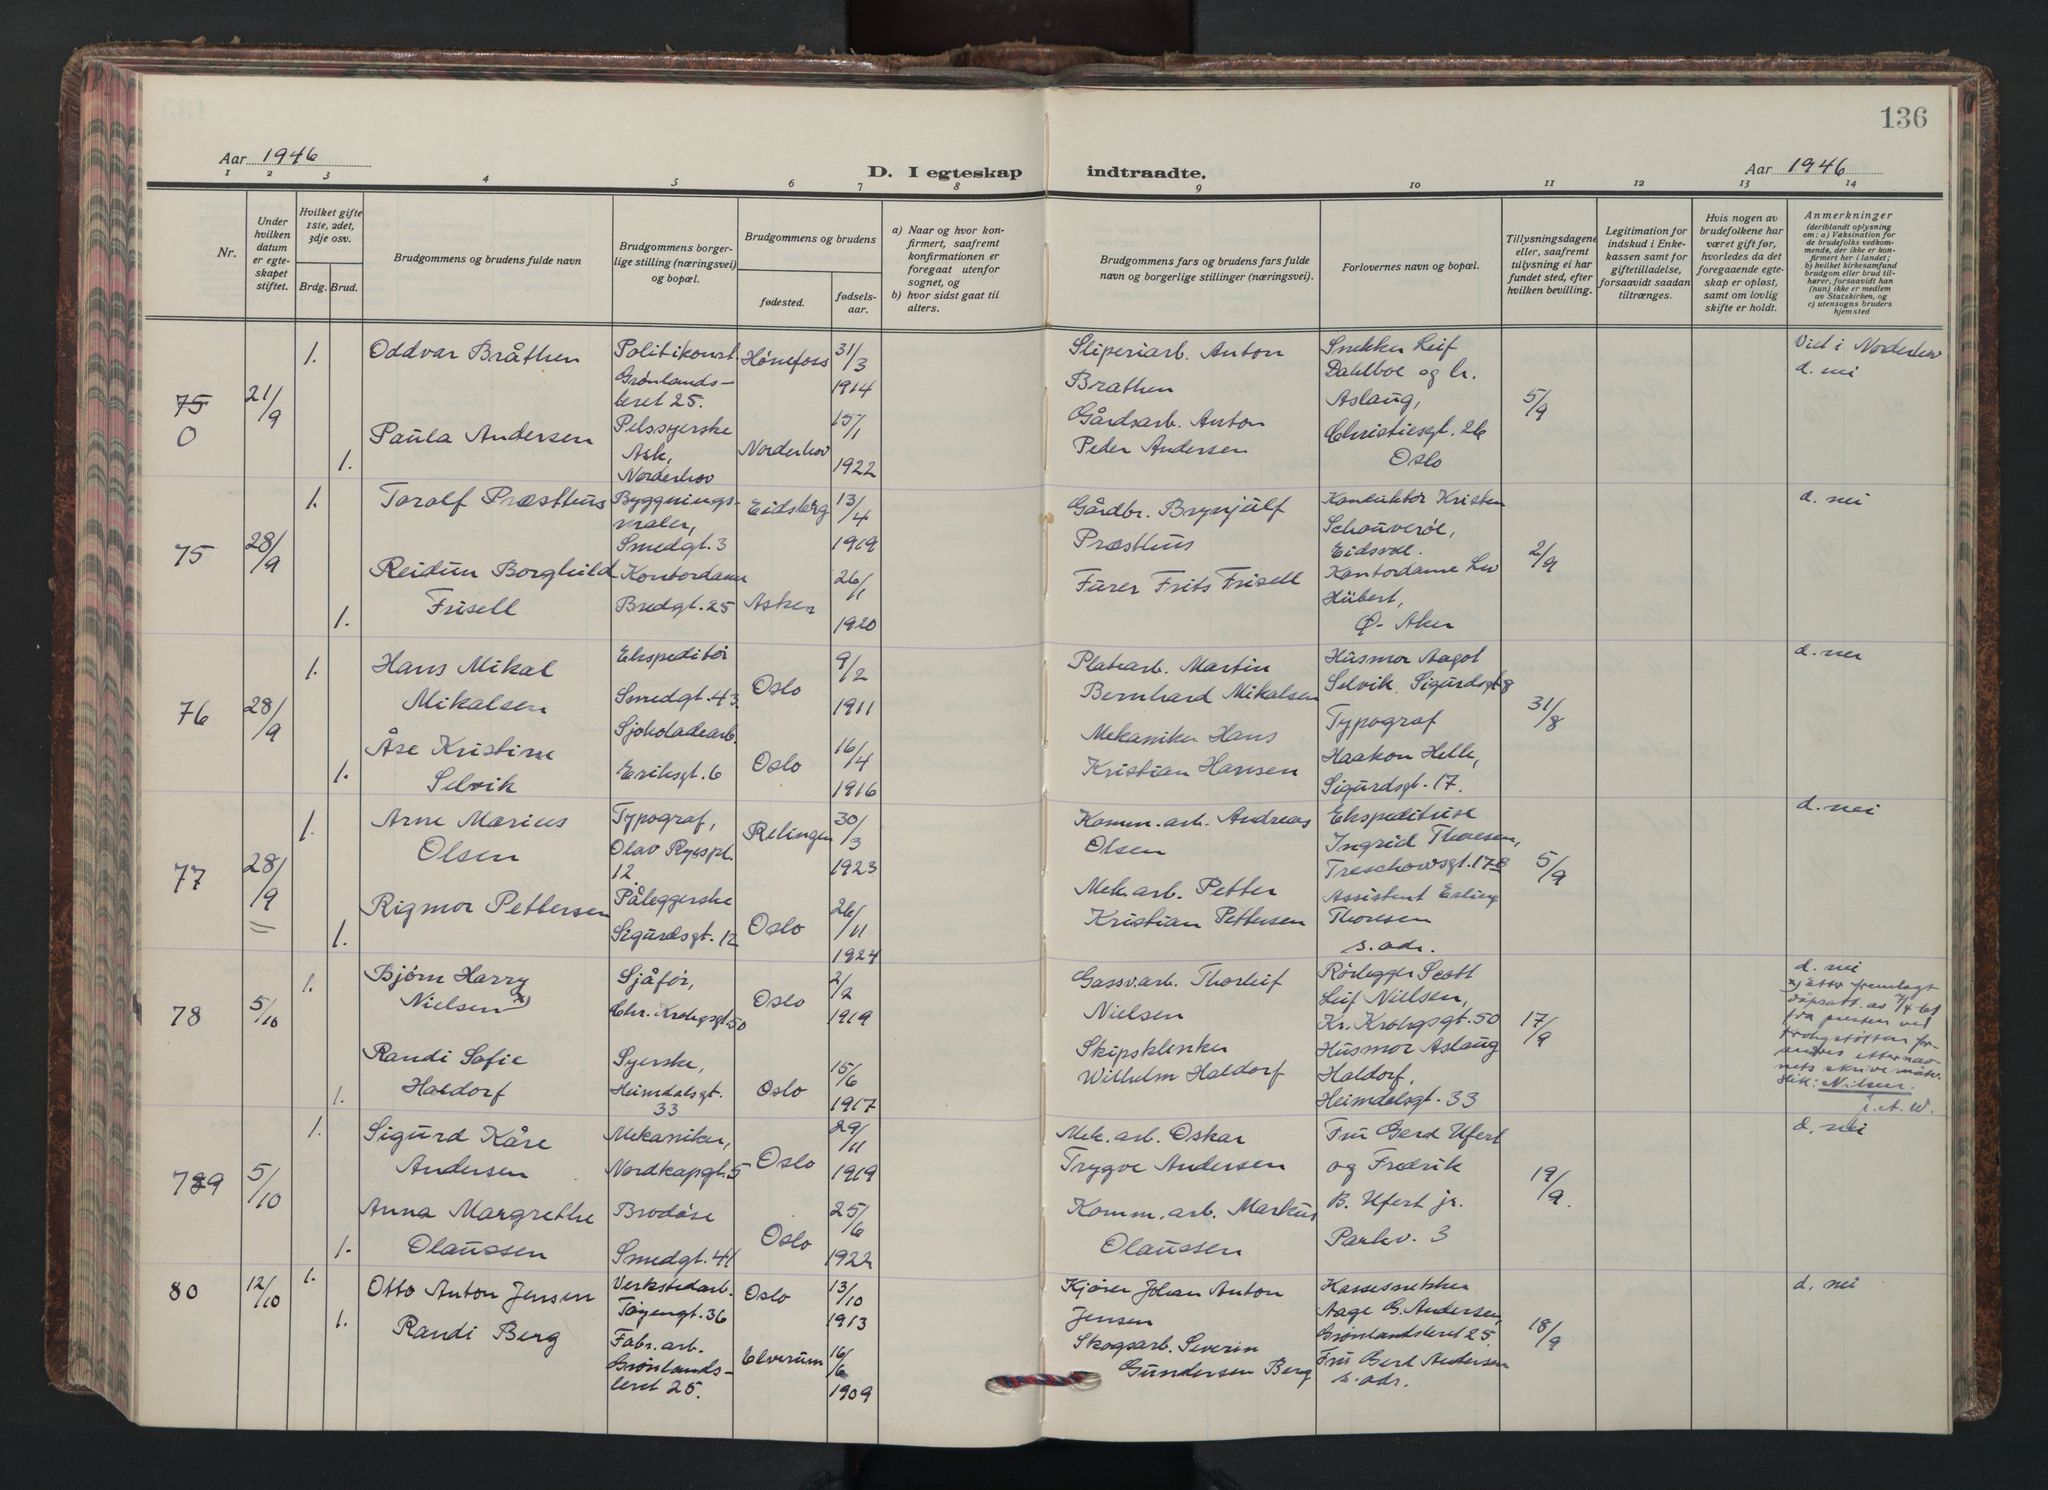 136
Aar 1946
D. I egteskap indtraadte.
Aar 1946
1 2 3 4 5 6 7 8 9 10 11 12 13 14
Nr.
Under
hvilken
datum
er egte-
skapet
stiftet.
Hvilket gifte
1ste, 2det,
3dje osv.
Brdg. Brud.
Brudgommens og brudens fulde navn
Brudgommens borger-
lige stilling (næringsvei)
og bopæl.
Brudgommens og brudens
fødested.
fødsels-
aar.
a) Naar og hvor kon-
firmert, saafremt
konfirmationen er
foregaat utenfor
sognet, og
b) hvor sidst gaat til
alters.
Brudgommens fars og brudens fars fulde
navn og borgerlige stillinger (næringsvei).
Forlovernes navn og bopæl.
Tillysningsdagene
eller, saafremt
tillysning ei har
fundet sted, efter
hvilken bevilling.
Legitimation for
indskud i Enke-
kassen samt for
giftetilladelse,
forsaavidt saadan
tiltrænges.
Hvis nogen av
brudefolkene har
været gift før,
hvorledes da det
foregaaende egte-
skap er opløst,
samt om lovlig
skifte er holdt.
Anmerkninger
(deriblandt oplysning
om: a) Vaksination for
de brudefolks vedkom-
mende, der ikke er kon-
firmert her i landet;
b) hvilket kirkesamfund
brudgom eller brud til-
hører, forsaavidt han
(hun) ikke er medlem
av Statskirken, og
c) utensogns bruders
hjemsted
75
0
21/9
1.
Oddvar Bråthen
Politikonst.
Grønlands-
leret 25.
Hønefoss
31/3
1914
1.
Paula Andersen
Pelssyerske
Ask,
Norderhov
Norderhov
15/1
1922
Sliperiarb. Anton
Bråthen
Gårdsarb. Anton
Peder Andersen
Snekker Leif
Dahlboe og hr.
Aslaug,
Christiesgt. 26
Oslo
5/9
Vid i Norderhov
d. nei
75
28/9
1.
Toralf Præsthus
Byggnings-
maler,
Smedgt. 3
Eidsberg
13/4
1919
1.
Reidun Borghild
Frisell
Kontordame
Bredgt. 25
Asker
26/1
1920
Gårdbr. Brynjulf
Præsthus
Furer Frits Frisell
Konduktør Kristen
Schouverøe,
Eidsvoll.
Kontordame Liv
Hübert,
Ø. Aker
2/9
d. nei
76
28/9
1.
Hans Mikal
Mikalsen
Ekspeditør
Smedgt. 43
Oslo
9/2
1911
1.
Åse Kristine
Selvik
Sjokoladearb.
Eriksgt. 6
Oslo
16/4
1916
Platearb. Martin
Bernhard Mikalsen
Mekaniker Hans
Kristian Hansen
Husmor Aagot
Selvik. Sigurdsgt 8
Typograf
Haakon Helle,
Sigurdsgt. 17.
31/8
d. nei
77
28/9
1.
Arne Marius
Olsen
Typograf,
Olav Ryespl.
12.
Relingen
30/3
1923
1.
Rigmor Pettersen
Påleggerske
Sigurdsgt. 12
Oslo
26/11
1924
Komm. arb. Andreas
Olsen
Mek. arb. Petter
Kristian Pettersen
Ekspeditrise
Ingrid Thoresen,
Treschowsgt. 17 B
Assistent Erling
Thoresen
s. adr.
5/9
d. nei
78
5/10
1.
Bjørn Harry
Nielsen x)
Sjåfør,
Chr. Krohgsgt. 50
Oslo
2/2
1919
1.
Randi Sofie
Haldorf
Syerske,
Heimdalsgt.
33
Oslo
15/6
1917
Gassv. arb. Thorleif
Nielsen
Skipsklinker
Wilhelm Haldorf
Rørlegger Scott
Leif Nielsen,
Kr. Krohgsgt. 50
Husmor Aslaug
Haldorf,
Heimdalsgt. 33
17/9
d. nei
x) Etter fremlagt
dåpsatt. av 7/4 61
fra presten ved
for-
andres etternav-
nets skrivemåte
til: Nilsen.
79
5/10
1.
Sigurd Kåre
Andersen
Mekaniker,
Nordkapgt. 5
Oslo
29/11
1919
1.
Anna Margrethe
Olaussen
Brodøse
Smedgt. 41
Oslo
25/6
1922
Mek. arb. Oskar
Trygve Andersen
Komm. arb. Markus
Olaussen
Fru Gerd Ufert
og Fredrik
B. Ufert jr.
Parkv. 3
19/9.
d. nei
80
12/10
1.
Otto Anton Jensen
Verkstedarb.
Tøyengt. 36
Oslo
13/10
1913
1.
Randi Berg
Fabr. arb.
Grønlands-
leret 25.
Elverum
16/6
1909
Kjører Johan Anton
Jensen
Skogsarb. Severin
Gundersen Berg
Kassesnekker
Aage G. Andersen,
Grønlandsleret 25
Fru Gerd Andersen
s. adr.
18/9
d. nei